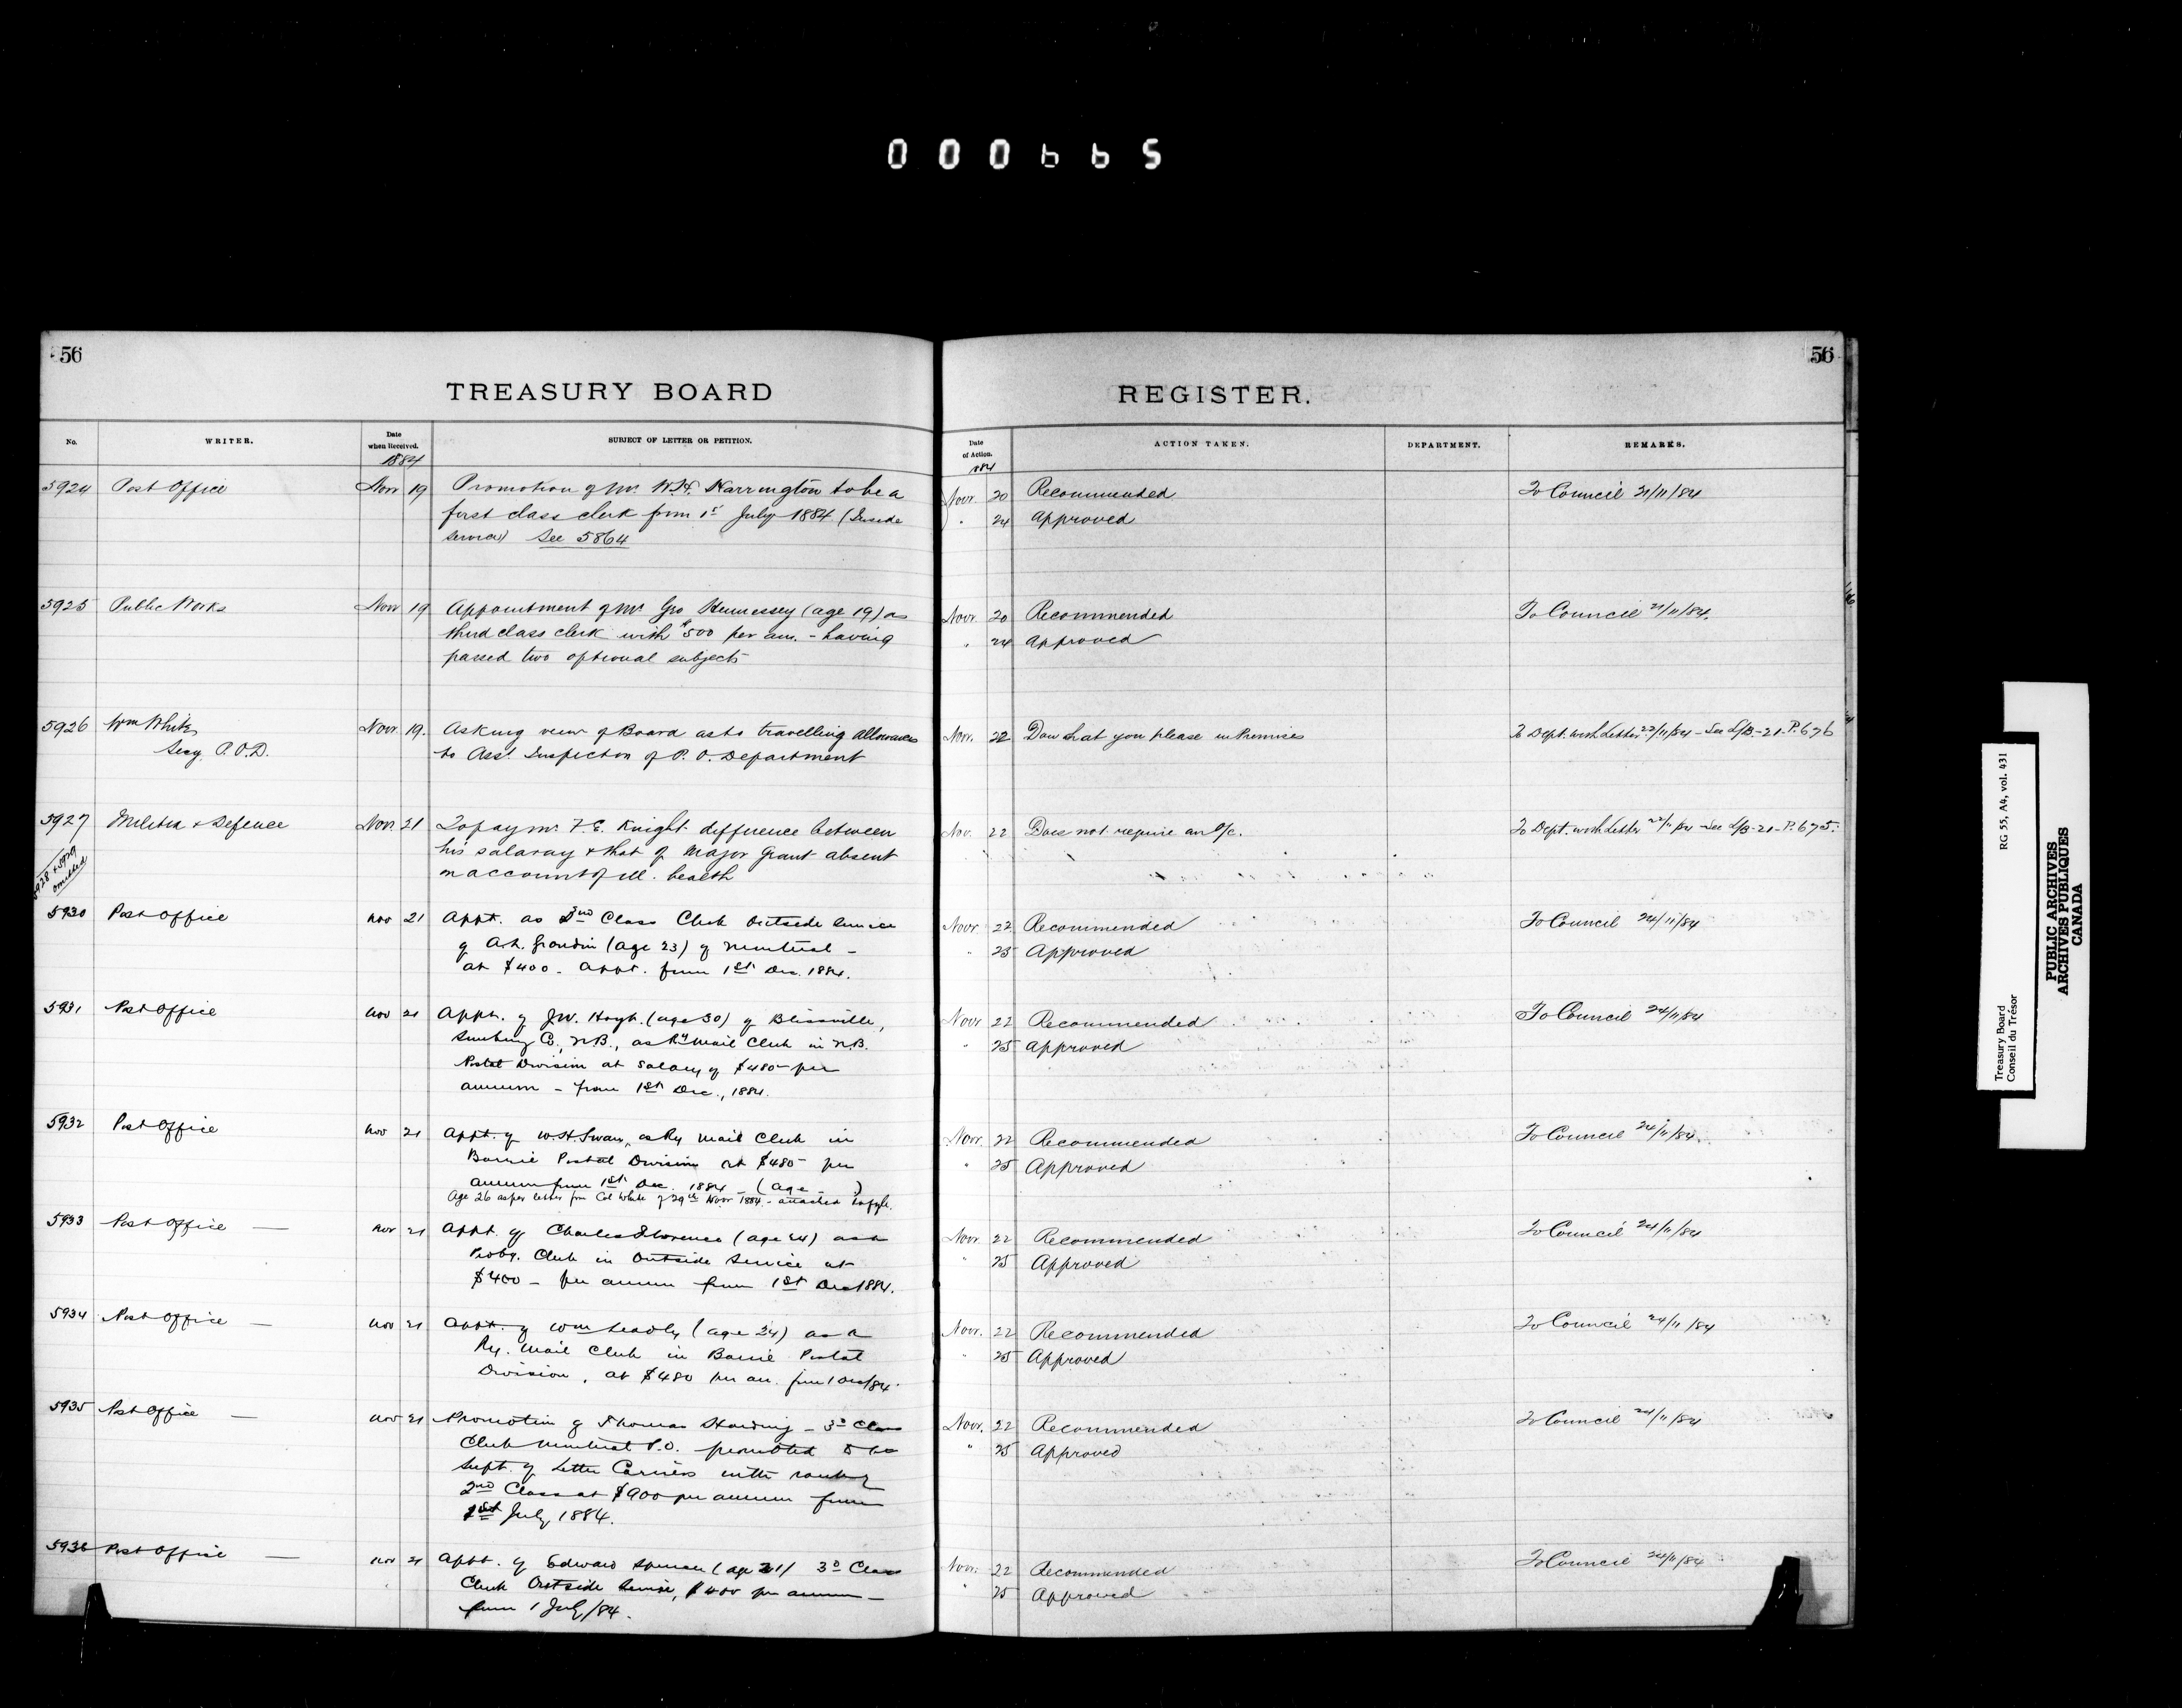 000665
56
56
TREASURY BOARD
REGISTER.
No.
WRITER.
Date when Received.
SUBJECT OF LETTER OR PETITION.
Date of Action.
ACTION TAKEN.
DEPARTMENT.
REMARKS.
1884
1884
5924 Post Office Novr 19 Promotion of Mr. W.H. Harrington to be a
first class clerk from 1st July 1884 (Inside
service) See 5864
Novr. 20 Recommended To Council 21/11/84
" 24 Approved
5925 Public Works Novr 19 Appointment of Mr Geo Hennessey (age 19) as
third class clerk with $500 per an. - having
passed two optional subjects
Novr. 20 Recommended To Council 21/11/84.
" 24 Approved
5926 Wm White Novr 19. Asking view of Board as to travelling allowances
Secy. P.O.D. to Asst. Inspector of P.O. Department
Nov. 22 Do what you please in Premises To Dept. with Letter 22/11/84 - See L/B-21-P.676
5927 Militia & Defence Novr. 21 To pay Mr. F.E. Knight difference between
his salaray & that of Major Grant absent
on account of ill. health
Nov. 22 Does not require an O/c. To Dept. with Letter 22/11/84 - See L/B-21-P.675.
5928 & 5929
omitted
5930 Post Office Nov 21 Appt. as 3rd Class Clerk Outside Service
of A.H. Grondin (age 23) of Montreal -
at $400 - appt. from 1st Dec. 1884.
Novr 22 Recommended To Council 24/11/84
" 25 Approved
5931 Post Office Nov 21 Appt. of J.W. Hoyt. (age 30) of Blissville,
Sunbury Co., N.B., as Ry Mail Clerk in N.B.
Postal Division at salary of $480 per
annum - from 1st Dec., 1884.
Novr 22 Recommended To Council 24/11/84
" 25 Approved
5932 Post Office Nov 21 Appt. of W.H. Swan, as Ry Mail Clerk in
Barrie Postal Division at $480 per
annum from 1st Dec. 1884 (age )
Age 26 as per letter from Col White of 29th Novr 1884 - attached
Novr. 22 Recommended To Council 24/11/84.
" 25 Approved
5933 Post Office — Nov 21 Appt. of Charles Florence (age 24) as a
Proby. Clerk in Outside Service at
$400 - per annum from 1st Dec 1884.
Novr. 22 Recommended To Council 24/11/84
" 25 Approved
5934 Post Office — Nov 21 Appt. of Wm (age 24) as a
Ry. Mail Clerk in Barrie Postal
Division, at $480 per an. from 1 Dec/84.
Novr. 22 Recommended To Council 24/11/84
" 25 Approved
5935 Post Office — Nov 21 Promotion of Thomas Harding - 3d Class
Clerk Montreal P.O. promoted to be
Supt. of Letter Carriers with rank of
2nd Class at $900 per annum from
1st July 1884.
Novr. 22 Recommended To Council 24/11/84
" 25 Approved
5936 Post Office — Nov 21 Appt. of Edward Spencer (age 21) 3d Class
Clerk Outside Service, $400 per annum -
from 1 July/84.
Novr. 22 Recommended To Council 24/11/84
" 25 Approved
Treasury Board
Conseil du Trésor
RG 55, A4, vol. 431
PUBLIC ARCHIVES
ARCHIVES PUBLIQUES
CANADA